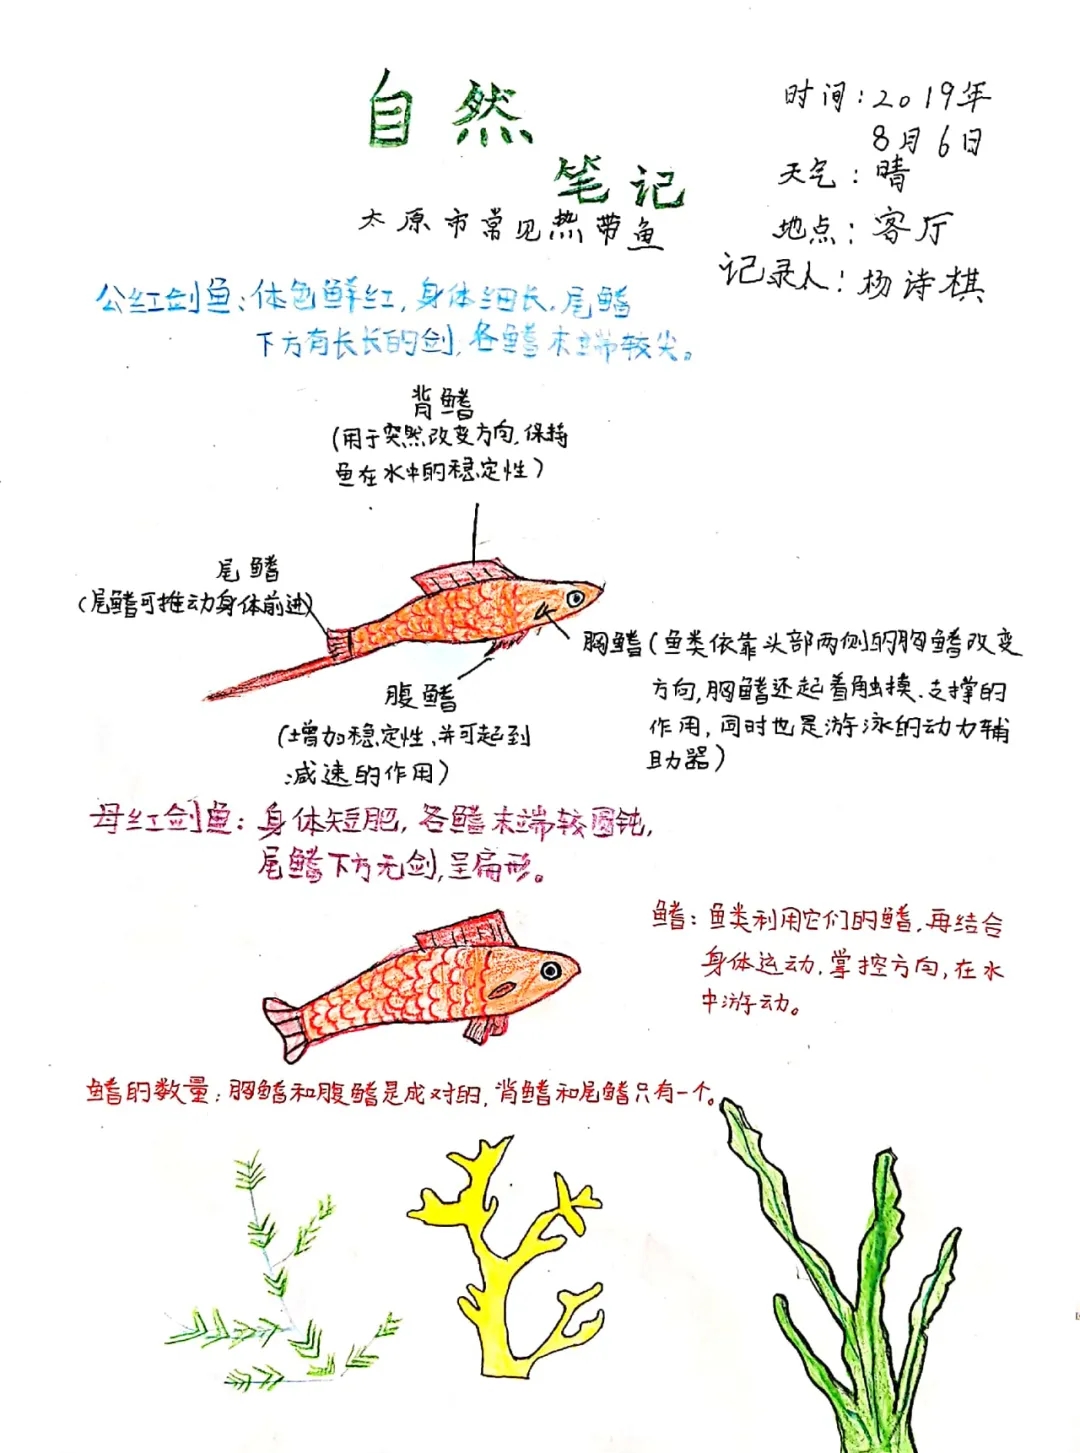 自然
笔记
太原市常见热带鱼
时间：2019年
8月6日
天气：晴
地点：客厅
记录人：杨诗棋
公红剑鱼：体色鲜红，身体细长，尾鳍
下方有长长的剑，各鳍末端较尖。
背鳍
（用于突然改变方向，保持
鱼在水中的稳定性）
尾鳍
（尾鳍可推动身体前进）
胸鳍（鱼类依靠头部两侧的胸鳍改变
方向，胸鳍还起着触摸、支撑的
作用，同时也是游泳的动力辅
助器）
腹鳍
（增加稳定性，并可起到
减速的作用）
母红剑鱼：身体短肥，各鳍末端较圆钝，
尾鳍下方无剑，呈扁形。
鳍：鱼类利用它们的鳍，再结合
身体运动，掌控方向，在水
中游动。
鳍的数量：胸鳍和腹鳍是成对的，背鳍和尾鳍只有一个。